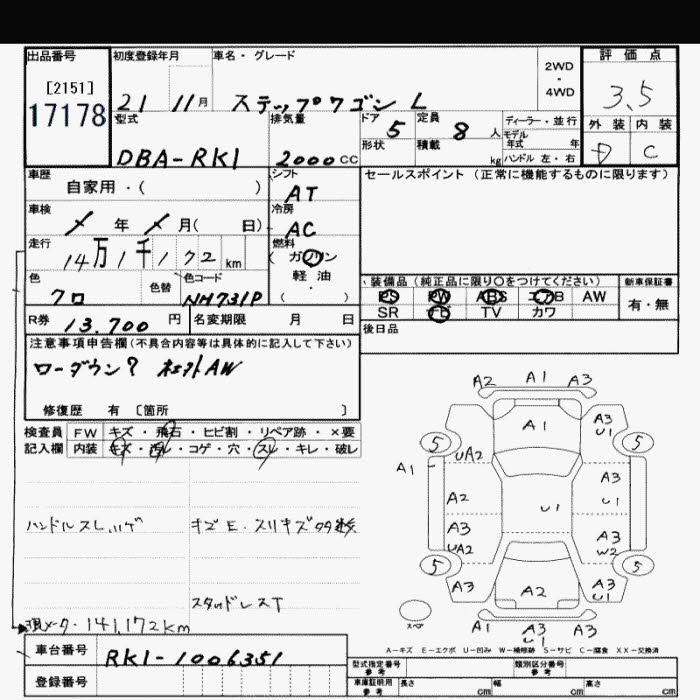 出品番号 初度登録年月 車名・グレード 評価点
[2151]
17178
21 11月 ステップワゴン L
2WD
・
4WD
3.5
型式 排気量 ドア 定員 ディーラー・並行 外装 内装
DBA-RK1 2000CC 5 8人 モデル年式 年 D C
形状 積載 kg ハンドル 左・右
車歴 シフト セールスポイント(正常に機能するものに限ります)
自家用・( ) AT
車検 年 月( 日) 冷房 AC
走行 14万1千172km 燃料 ガソリン
軽油
( )
色 色替 色コード
クロ NH731P
装備品(純正品に限り○をつけてください) 新車保証書
PS PW ABS エアB AW 有・無
SR TV カワ
R券 13.700円 名変期限 月 日 後日品
注意事項申告欄(不具合内容等は具体的に記入して下さい)
ローダウン?
修復歴 有 〔箇所 〕
検査員 FW キズ・飛石・ヒビ割・リペア跡・×要
記入欄 内装 キズ・汚レ・コゲ・穴・スレ・キレ・破レ
ハンドルスレ
スタッドレスT
現メータ・141,172km
車台番号 RK1-1006351
登録番号
A2 A1 A3
A1
A3
U1
5 5
UA2
A1
A2 U1 A3
U1
A3
UA2
A3
W2
5 5
A3 A2 A3
U1
スペア
A1 A3
U1
A3
A-キズ E-エクボ U-凹み W-補修跡 S-サビ C-腐食 XX-交換済
型式指定番号 参考 類別区分番号 参考
車庫証明用 参考 長さ cm 幅 cm 高さ cm